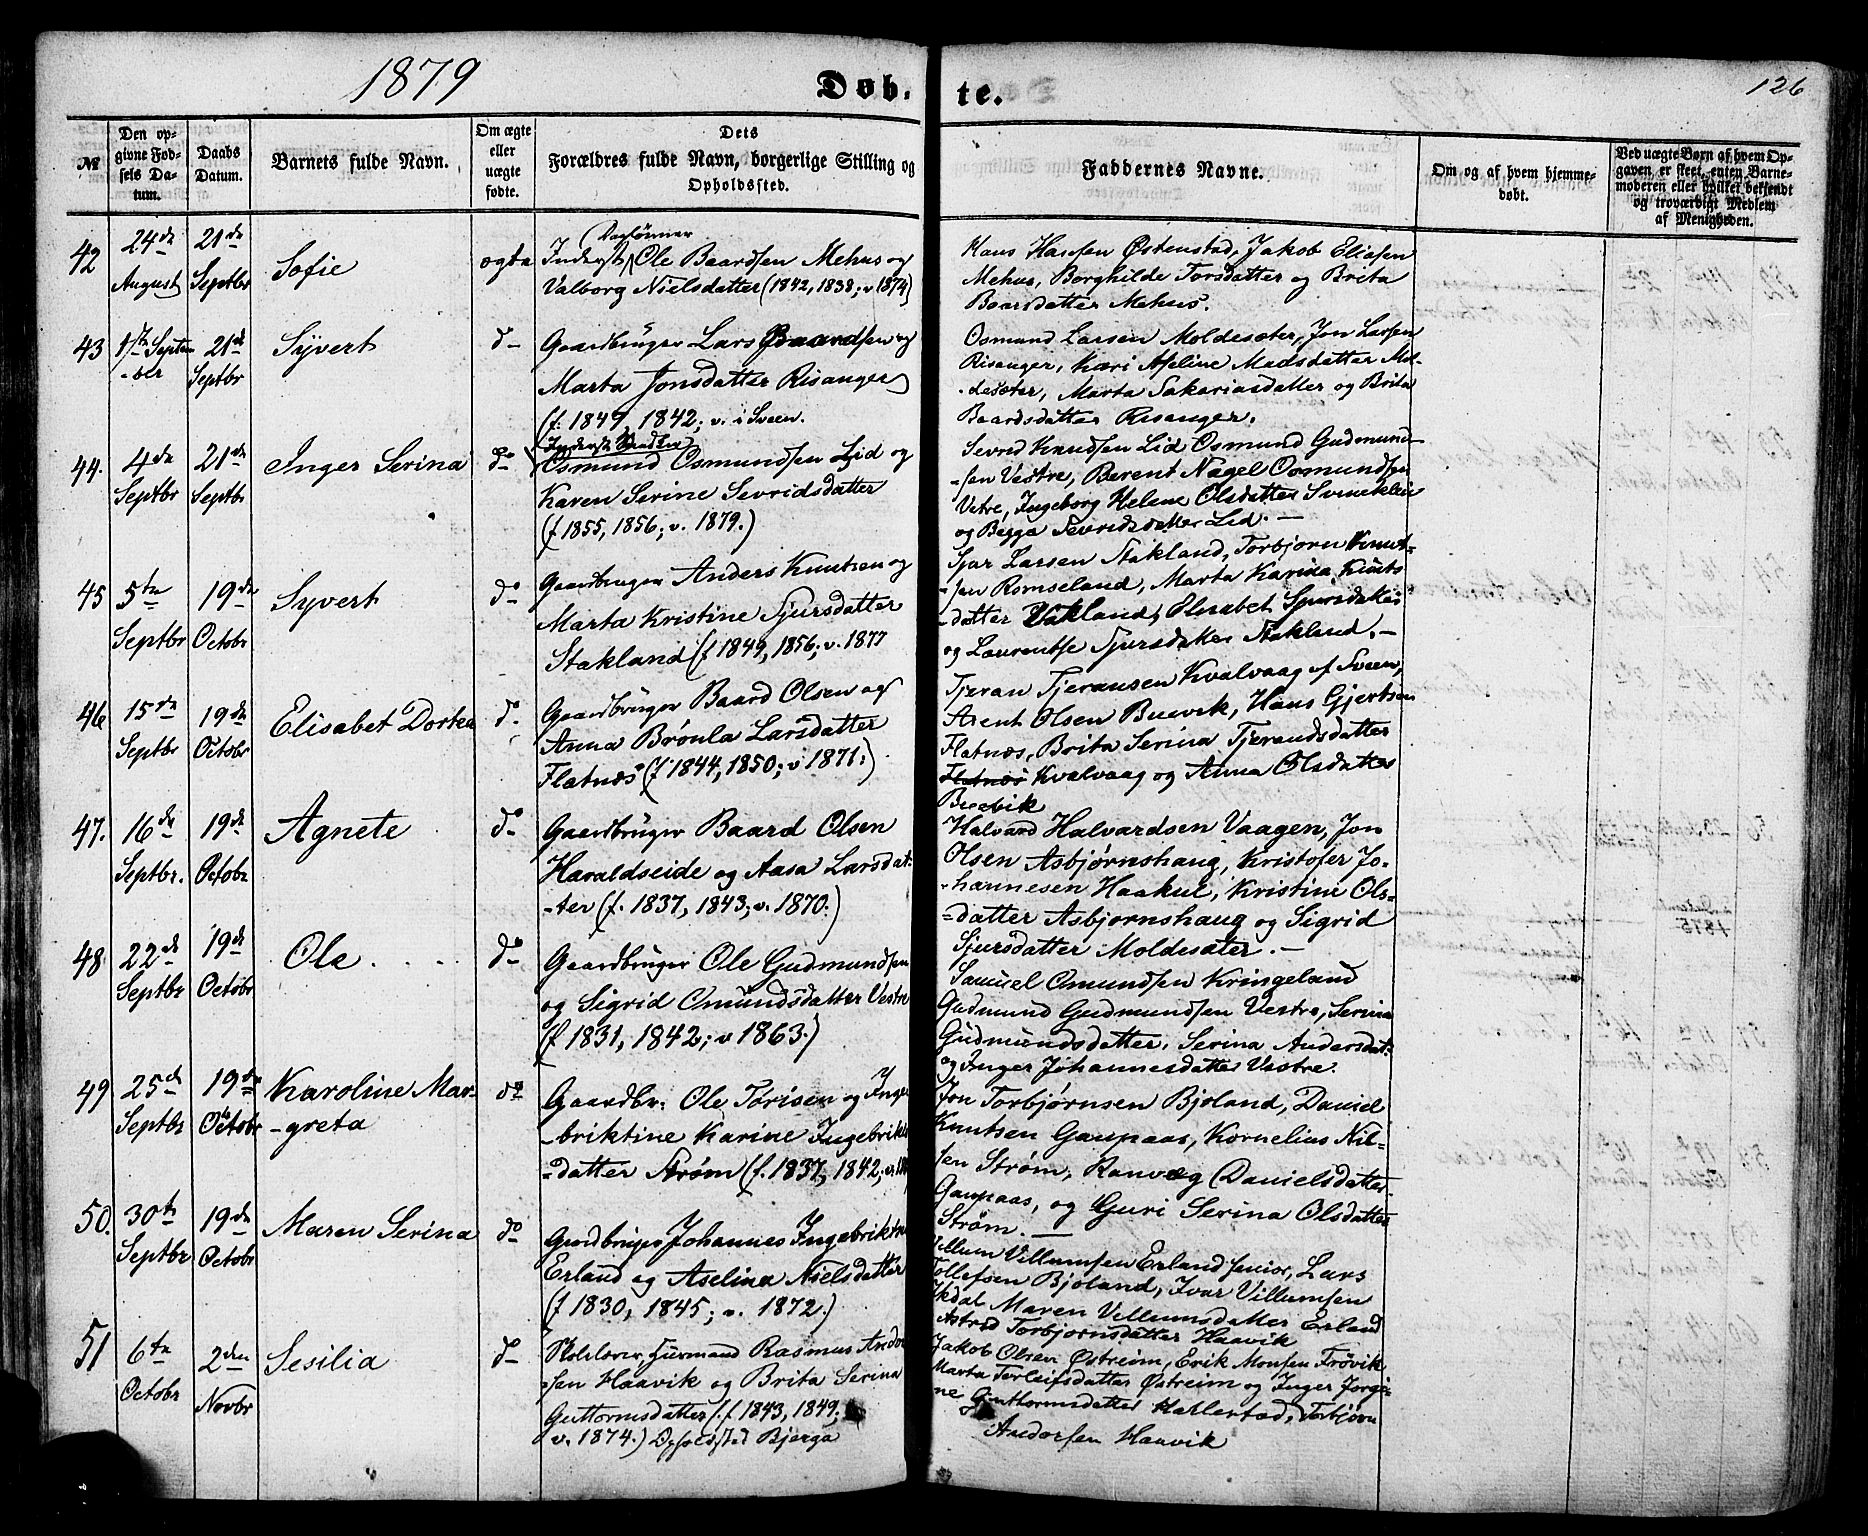 1879
Døb-
te.
126
№
Den op-
givne Fød-
sels Da-
tum.
Daabs
Datum.
Barnets fulde Navn.
Om ægte
eller
uægte
fødte.
Dets
Forældres fulde Navn, borgerlige Stilling og
Opholdssted.
Faddernes Navne.
Om og af hvem hjemme-
døbt.
Ved uægte Børn af hvem Op-
gaven er skeet, enten Barne-
moderen eller hvilket bekjendt
og troværdigt Medlem
af Menigheden.
42
24de
August
21de
Septbr
Sofie
ægte
Inderst Ole Baardsen Mehus og
Valborg Nielsdatter (1842, 1838; v 1874)
Hans Hansen Østenstad, Jakob Eliasen
Mehus, Borghilde Torsdatter og Brita
Baarsdatter Mehus.
43
1ste Septem
-ber
21de
Septbr
Syvert
do
Gaardbruger Lars Baardsen og
Marta Jonsdatter Risanger
(f. 1849, 1842; v. i Sveen.
Osmund Larsen Moldesæter, Jon Larsen
Risanger, Kari Aseline Madsdatter Mol-
-desæter, Marta Sakariasdatter og Brita
Baardsdatter Risanger.
44.
4de
Septbr
21de
Septbr
Inger Serina
do
Inderst
Osmund Osmundsen Lid og
Karen Serine Sevridsdatter
(f 1855, 1856; v. 1879.)
Sevrid Knudsen Lid Osmund Gudmund-
-sen Vestre, Berent Nagel Osmundsen
Vestre, Ingeborg Helene Olsdatter
og Begga Sevridsdatter Lid. —
45
5te
Septbr
19de
Octobr
Syvert
do
Gaardbruger Anders Knutsen og
Marta Kristine Sjursdatter
Stakland (f 1849, 1856; v. 1877
Sjur Larsen Stakland, Torbjørn Knut-
-sen Romseland, Marta Karina Knuts
-datter Vakland, Elisabet Sjursdatter
og Laurentse Sjursdatter Stakland. —
46
15de
Septbr
19de
Octobr
Elisabet Dortea
do
Gaardbruger Baard Olsen og
Anna Brønla Larsdatter
Flatnæs (f 1844, 1850; v 1871.)
Tjeran Tjeransen Kvalvaag af Sveen,
Arent Olsen Buevik, Hans Gjertsen
Flatnæs, Brita Serina Tjerandsdatter
Flatnæs Kvalvaag og Anna Olsdatter
Buevik
47.
16de
Septbr.
19de
Octobr
Agnete
do
Gaardbruger Baard Olsen
Haraldseide og Aasa Larsdat-
-ter (f. 1837, 1843; v. 1870.)
Halvard Halvardsen Vaagen, Jon
Olsen Asbjørnshaug, Kristofer Jo-
-hannesen Haakul, Kristine Ols-
-datter Asbjørnshaug og Sigrid
Sjursdatter Moldesæter. —
48
22de
Septbr
19de
Octobr
Ole
do
Gaardbruger Ole Gudmundsen
og Sigrid Omundsdatter Vestre
(f. 1831, 1842; v 1863.)
Samuel Omundsen Kringeland
Gudmund Gudmundsen Vestre, Serina
Gudmundsdatter, Serina Andersdat-
og Inger Johannesdatter Vestre.
49
25de
Septbr
19de
Octobr
Karoline Mar-
-greta
do
Gaardbr. Ole Tørisen og Inge
-briktine Karine Ingebrikts
-datter Strøm (f. 1837, 1842; v.
Jon Torbjørnsen Bjoland, Daniel
Knutsen Gaupaas, Kornelius Nil-
sen Strøm, Ranvæg Danielsdatter
Gaupaas, og Guri Serina Olsdatter
Strøm. —
50.
30te
Septbr
19de
Octobr
Maren Serina
do
Gardbruger Johannes Ingebriktsen
Erland og Aselina Nielsdatter
(f 1830, 1845; v. 1872.)
Villum Villumsen Erland senior, Lars
Tollefsen Bjoland, Ivar Villumsen
Maren Villumsdatter Erland
Astrid Torbjornsdatter Haavik
51
6te
Octobr
2den
Novbr
Sesilia
do
Husmand Rasmus Andor
-sen Haavik og Brita Serina
Guttormsdatter (f 1843, 1849;
v. 1874.) Opholdssted Bjerga
Jakob Olsen Østreim, Erik Monsen Frøvik
Marta Torleifsdatter Østreim og Inger Jorgi-
ne Guttormsdatter Torbjørn
Andorsen Haavik